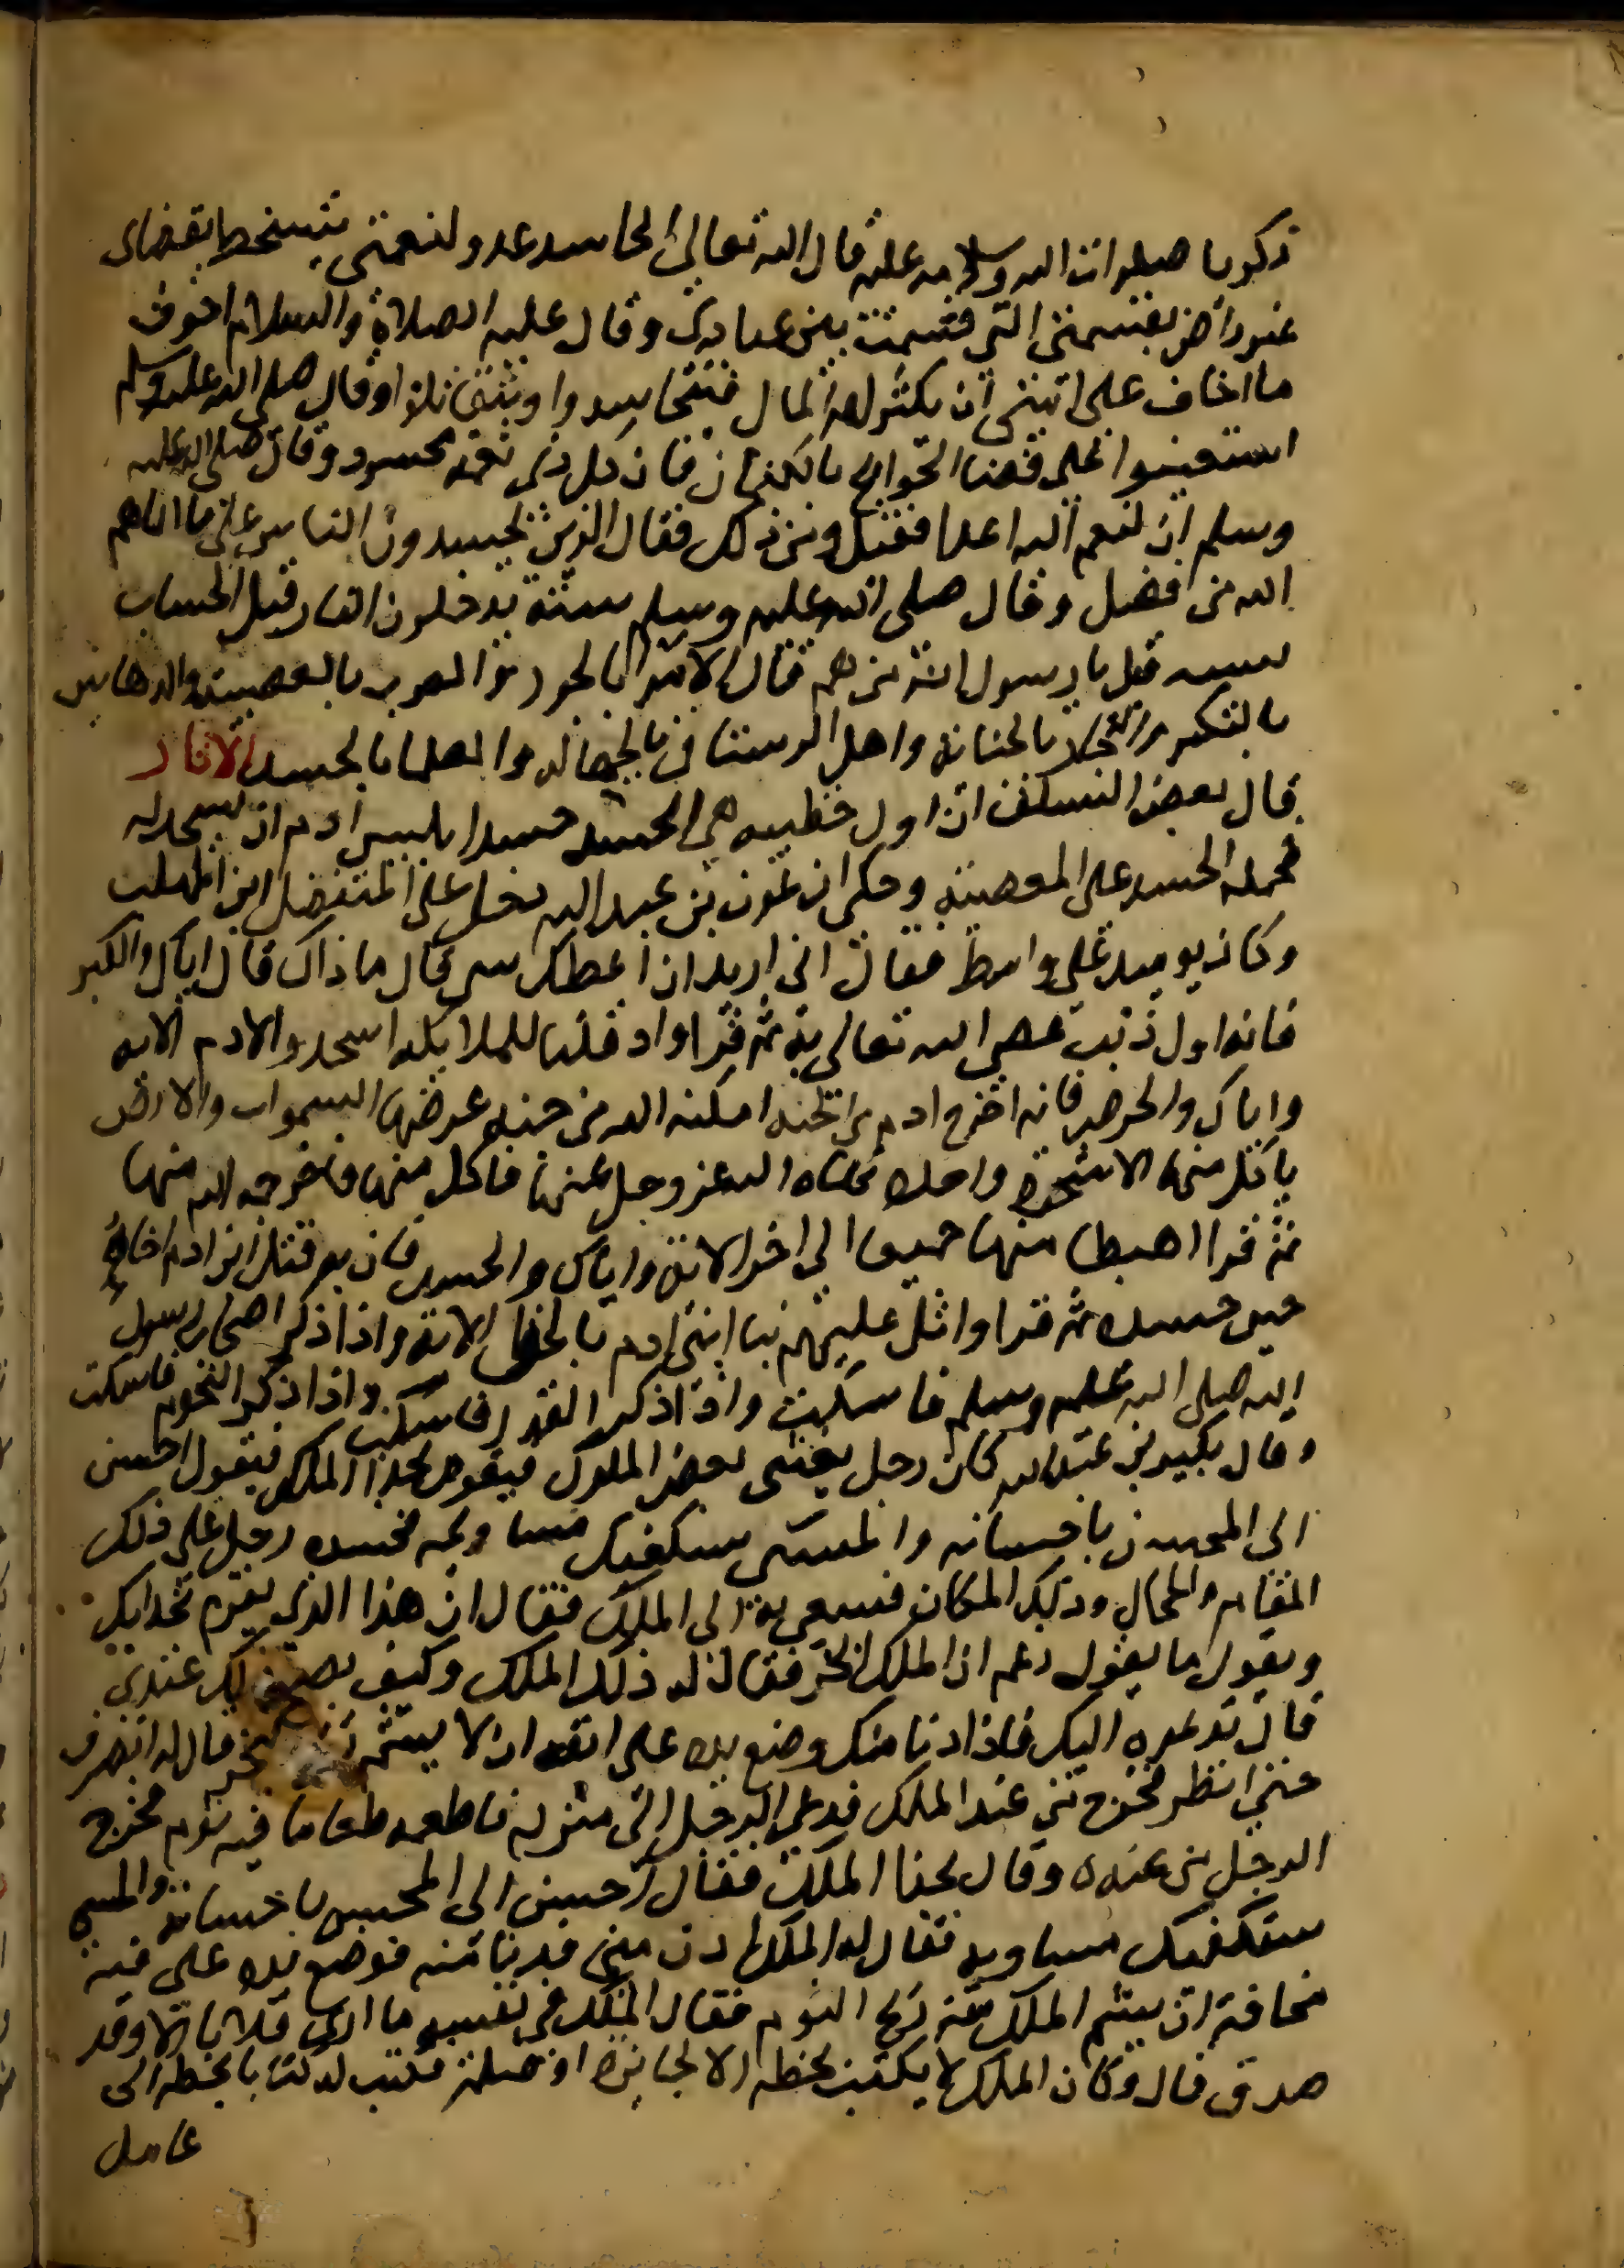 زكريا صلوات الله وسلامه عليه قال الله تعالى الحاسد عدو لنعمتي يتسخط بقضاي
غير راض بقسمتي التي قسمت بين عبادي وقال عليه الصلاة والسلام اخوف
ما اخاف على امتي ان يكثر لهم المال فيتحاسدوا ويقتتلوا وقال صلى الله عليه وسلم
استعينوا على قضا الحوايج بالكتمان فان كل ذي نعمه محسود وقال صلى الله عليه
وسلم ان لنعم الله اعدا فقيل ومن ذلك فقال الذين يحسدون الناس على ما اتاهم
الله من فضل وقال صلى الله عليه وسلم ستة يدخلون النار قبل الحساب
بسنه قيل يا رسول الله من هم قال الامرا بالجور والعرب بالعصبية والدهاقين
بالتكبر والتجار بالخيانه واهل الرستاق بالجهاله والعلما بالحسد الاثار
قال بعض السلف ان اول خطيه هي الحسد حسد ابليس ادم ان يسجد له
فحمله الحسد على المعصية وحكى ان عون بن عبد الله دخل على المتفضل ابن المهلب
وكان يوميد على واسط فقال اني اريد ان اعظك بشي قال ما ذاك قال اياك والكبر
فانه اول ذنب عصي الله تعالى به ثم قرا واذ قلنا للملايكه اسجدوا لادم الايه
واياك والحرص فانه اخرج ادم من الجنه اسكنه الله من جنه عرضها السموات والارض
ياكل منها الا شجرة واحده نهاه الله عز وجل عنها فاكل منها فاخرجه الله منها
ثم قرا اهبطا منها جميعا الى اخر الاية واياك والحسد فان به قتل ابن ادم اخاه
حين حسده ثم قرا واتل عليهم نبا ابني ادم بالحق الايه واذا ذكر اصحاب رسول
الله صلى الله عليه وسلم فاسكت واذا ذكر القدر فاسكت واذا ذكر النجوم فاسكت
وقال بكير بن عبد الله كان رجل يغشى بعض الملوك فيقوم بحذا الملك فيقول احسن
الى المحسن باحسانه والمسي سيكفيك مساويه فحسده رجل على ذلك
المقام والمحال وذلك المكان فسعى به الى الملك فقال ان هذا الذي يقوم بحدايك
ويقول ما يقول زعم ان الملك ابخر فقال له ذلك الملك وكيف يصح ذلك عندي
قال تدعوه اليك فاذا دنا منك وضع يده على انفه ان لا يشم البخر قال له انصرف
حتي انظر فخرج من عند الملك فدعى الرجل الى منزله فاطعمه طعاما فيه ثوم فخرج
الرجل من عنده وقال بحذا الملك فقال احسن الى المحسن باحسانه والمسي
سيكفيك مساويه فقال له الملك ادن مني فدنا منه فوضع يده على فيه
مخافة ان يشم الملك منه ريح الثوم فقال الملك في نفسه ما ارى فلانا الا وقد
صدق قال وكان الملك لا يكتب بخطه الا لجايزه او صله فكتب له كتابا بخطه الى
عامل